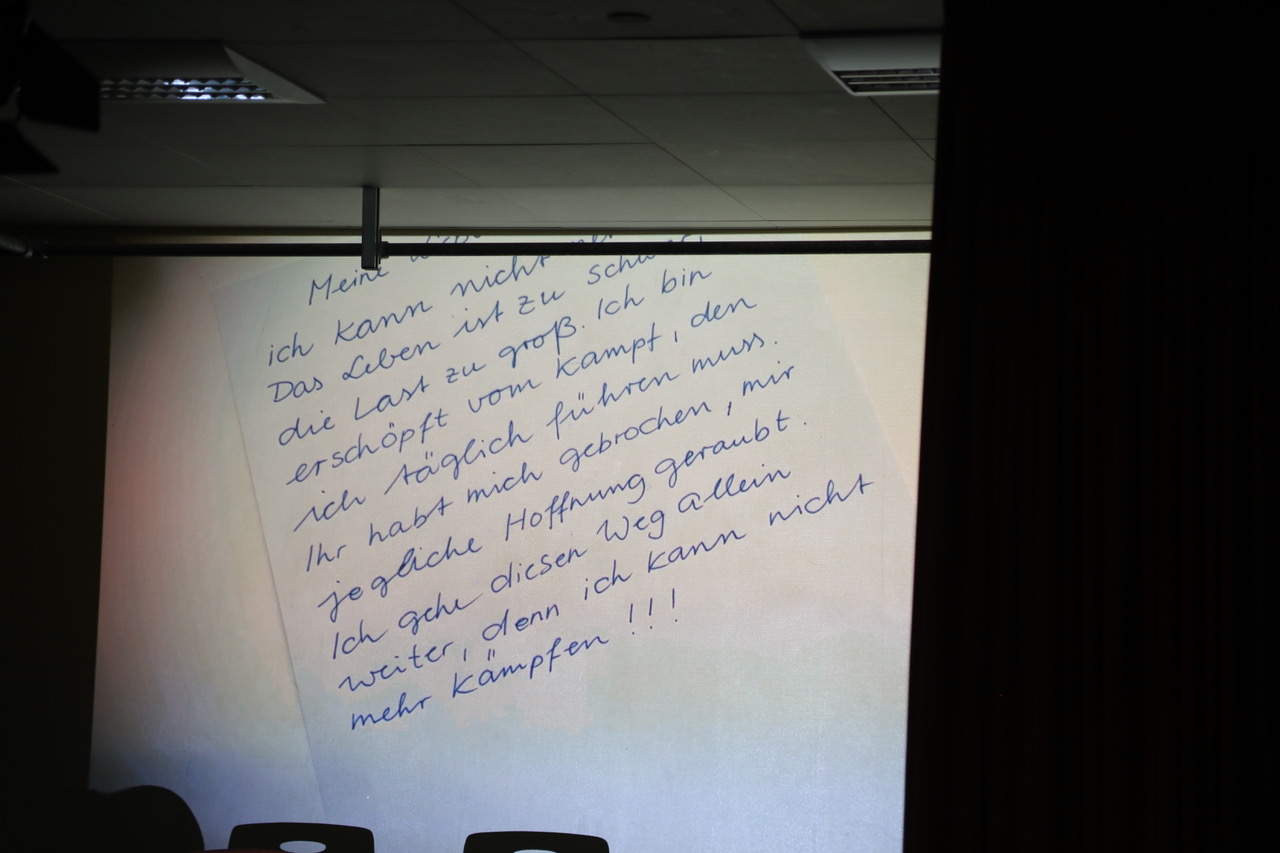 Meine
ich kann nicht
Das Leben ist zu schwer,
die Last zu groß. Ich bin
erschöpft vom Kampf, den
ich täglich führen muss.
Ihr habt mich gebrochen, mir
jegliche Hoffnung geraubt.
Ich gehe diesen Weg allein
weiter, denn ich kann nicht
mehr kämpfen!!!